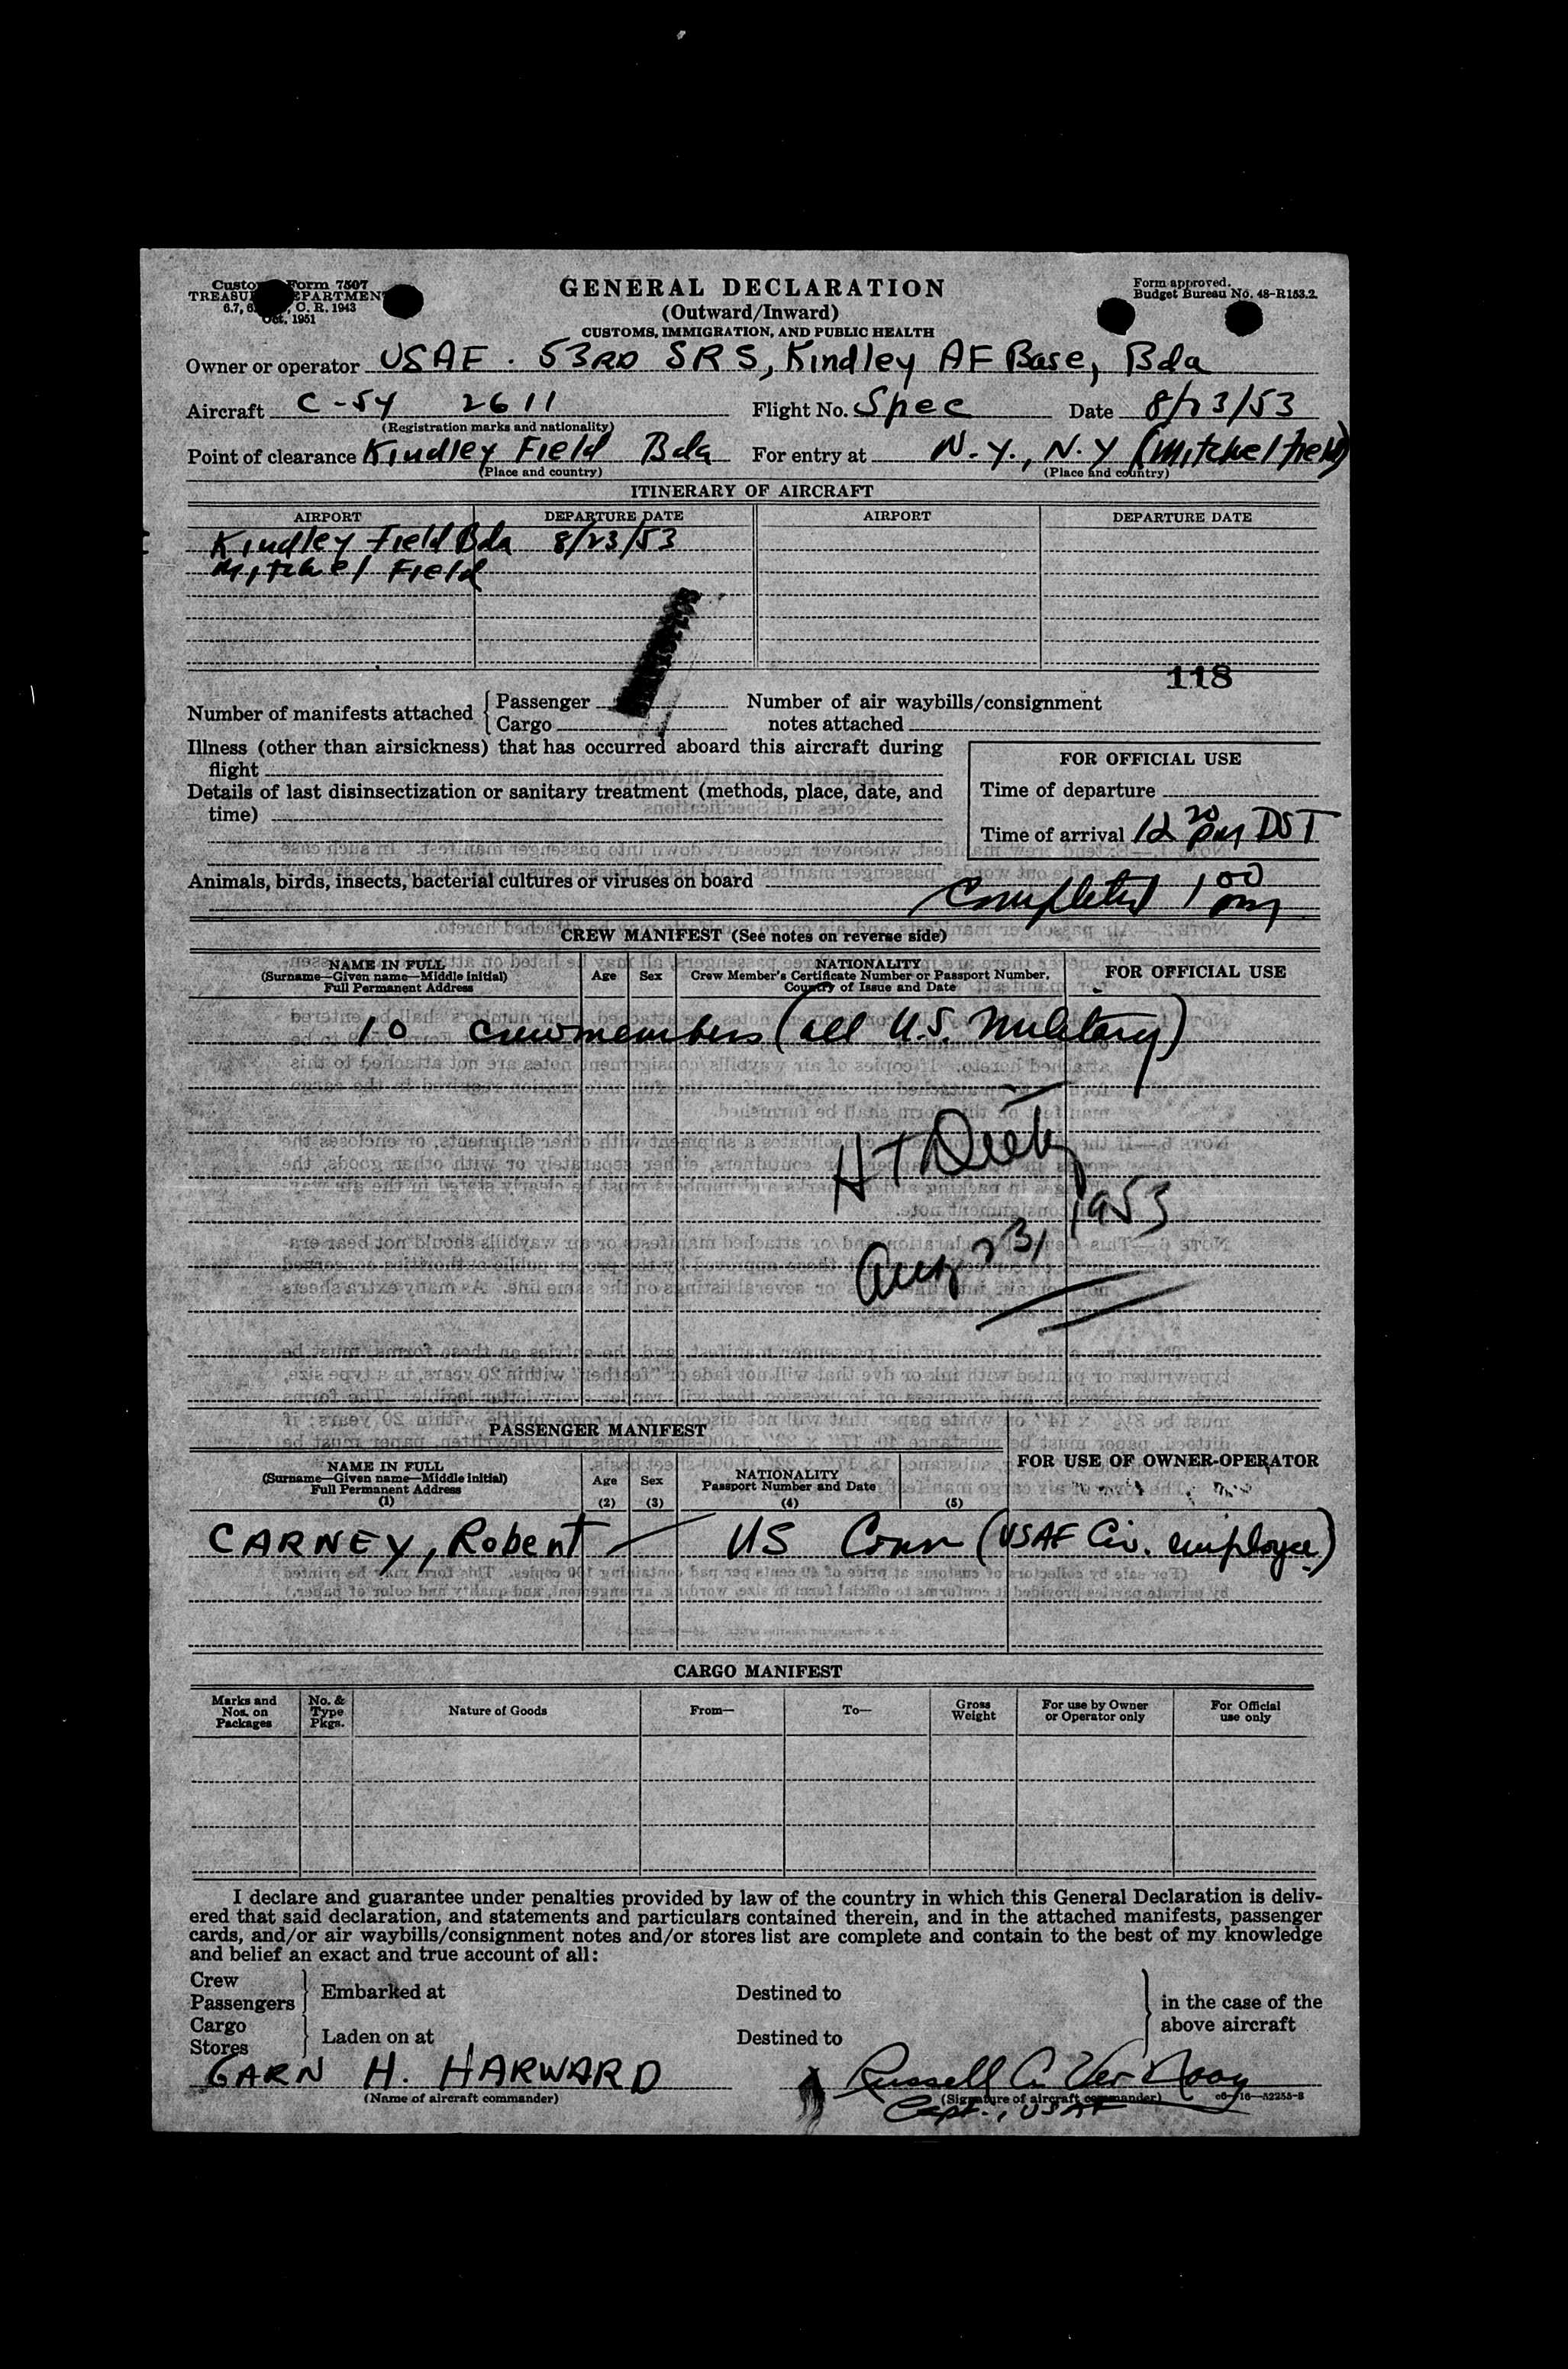 Customs Form 7507
TREASURY DEPARTMENT
6.7, C. R. 1943
Oct. 1951
GENERAL DECLARATION
(Outward/Inward)
CUSTOMS, IMMIGRATION, AND PUBLIC HEALTH
Form approved.
Budget Bureau No. 48-R153.2
Owner or operator USAF. 53RD SRS, Kindley AF Base, Bda
Aircraft C-54 2611 Flight No. Spec Date 8/23/53
(Registration marks and nationality)
Point of clearance Kindley Field Bda For entry at N.Y., N.Y (Mitchel Field)
(Place and country) (Place and country)
ITINERARY OF AIRCRAFT
AIRPORT DEPARTURE DATE AIRPORT DEPARTURE DATE
Kindley Field Bda 8/23/53
Mitchel Field
118
Number of manifests attached { Passenger Number of air waybills/consignment
Cargo notes attached
Illness (other than airsickness) that has occurred aboard this aircraft during
flight
Details of last disinsectization or sanitary treatment (methods, place, date, and
time)
FOR OFFICIAL USE
Time of departure
Time of arrival 12 20 PM DST
Animals, birds, insects, bacterial cultures or viruses on board
Completed 1 00 pm
CREW MANIFEST (See notes on reverse side)
NAME IN FULL
(Surname—Given name—Middle initial)
Full Permanent Address
Age Sex
NATIONALITY
Crew Member's Certificate Number or Passport Number,
Country of Issue and Date
FOR OFFICIAL USE
10 crewmembers (all U.S. Military)
Aug 23, 1953
PASSENGER MANIFEST
FOR USE OF OWNER-OPERATOR
NAME IN FULL
(Surname—Given name—Middle initial)
Full Permanent Address
(1)
Age
(2)
Sex
(3)
NATIONALITY
Passport Number and Date
(4) (5)
CARNEY, Robert — US Conn (USAF Civ. employee)
CARGO MANIFEST
Marks and
Nos. on
Packages
No. &
Type
Pkgs.
Nature of Goods From— To—
Gross
Weight
For use by Owner
or Operator only
For Official
use only
I declare and guarantee under penalties provided by law of the country in which this General Declaration is deliv-
ered that said declaration, and statements and particulars contained therein, and in the attached manifests, passenger
cards, and/or air waybills/consignment notes and/or stores list are complete and contain to the best of my knowledge
and belief an exact and true account of all:
Crew
Passengers } Embarked at Destined to
Cargo
Stores } Laden on at Destined to
} in the case of the
above aircraft
GARN H. HARWARD Russell C. Ver Nooy
(Name of aircraft commander) (Signature of aircraft commander) c6—16—52255-8
Capt., USAF